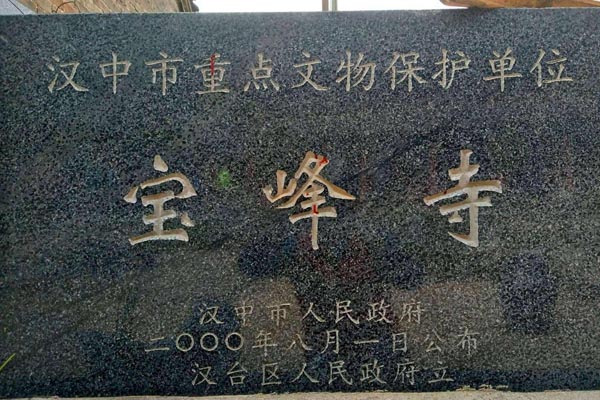 汉中市重点文物保护单位
宝峰寺
汉中市人民政府
二〇〇〇年八月一日公布
汉台区人民政府立